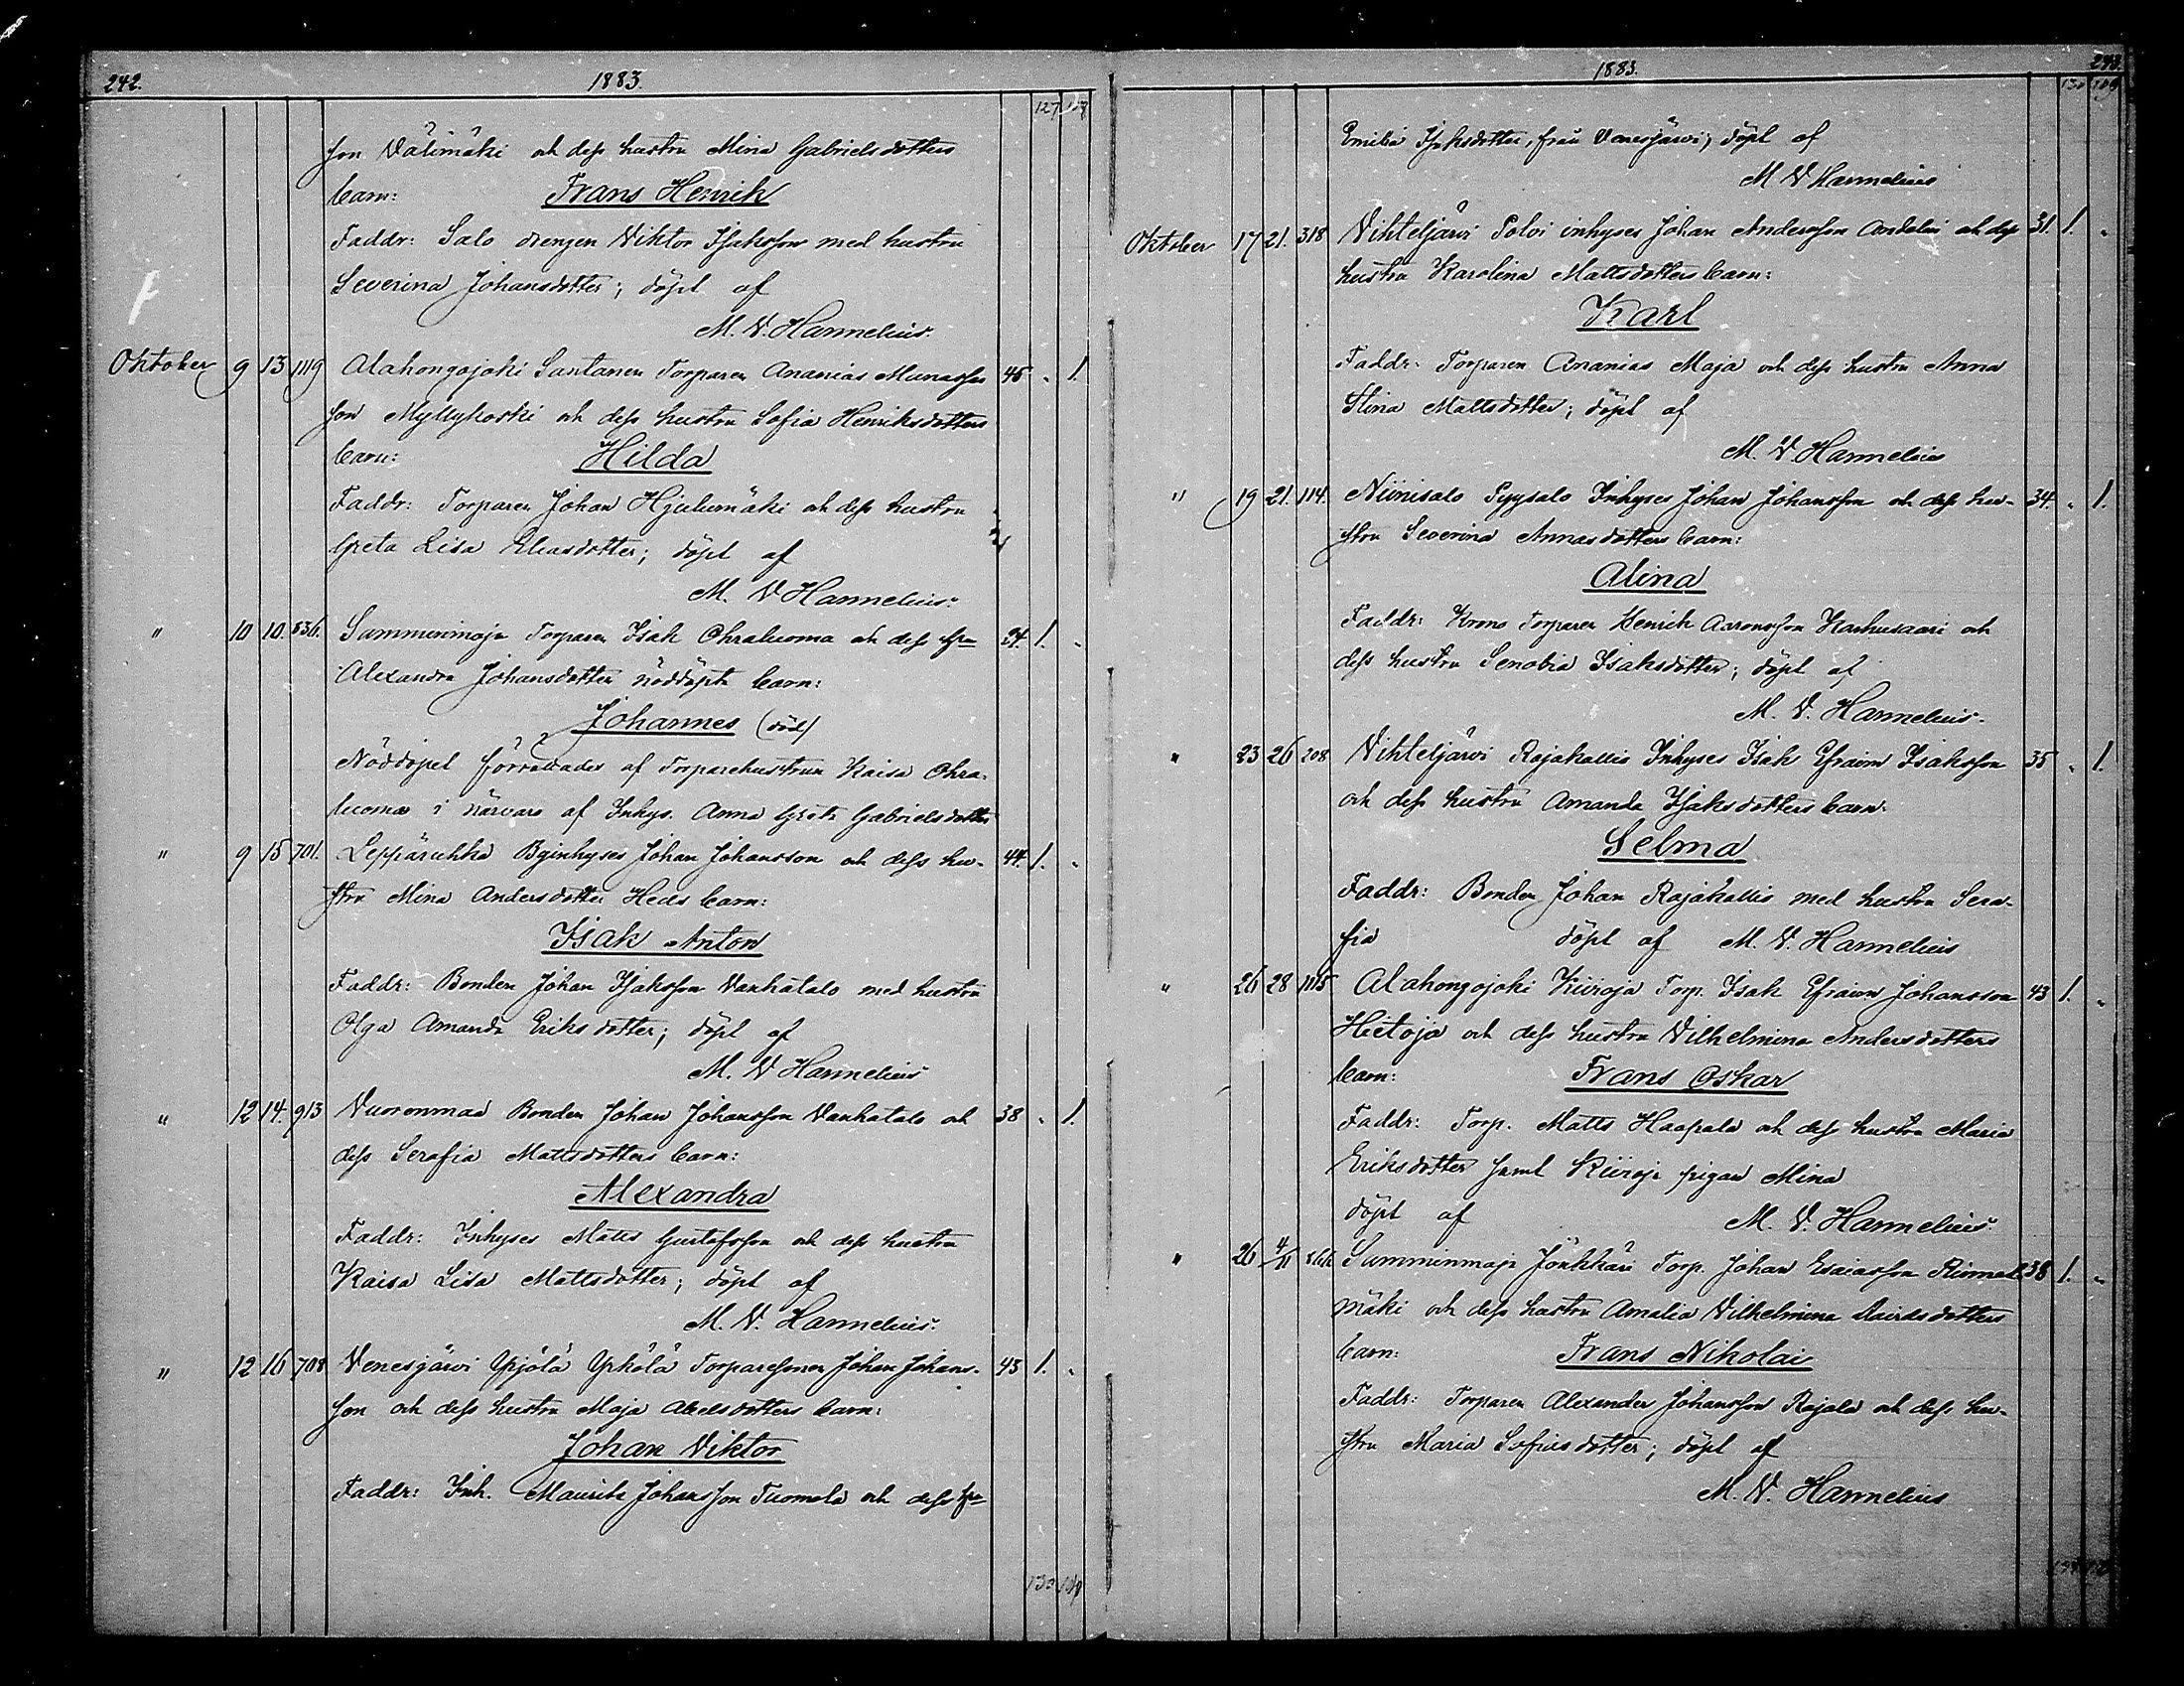 242. 1883.
127 107
son Välimäki och dess hustru Mina Gabrielsdotters
barn: Frans Henrik
Faddr: Salo drengen Viktor Isaksson med hustru
Severina Johansdotter; döpt af
M. V. Hannelius.
Oktober 9 13 1119 Alahongojoki Santanen Torparen Ananias Manasse 45 " 1.
son Myllykoski och dess hustru Sofia Henriksdotters
barn: Hilda
Faddr: Torparen Johan Hjulumäki och dess hustru
Greta Lisa Eliasdotter; döpt af
M. V Hannelius.
" 10 10. 836. Samminmaja Torparen Isak Ohraluoma och dess hru 24. 1. "
Alexandra Johansdotter nöddöpta barn:
Johannes (död)
Nöddopet förrättades af Torparehustrun Kaisa Ohra-
luoma i närvaro af Inhys. Anna Greta Gabrielsdotter
" 9 15 701. Leppäruhka Bginhyses Johan Johansson och dess hu- 44. 1. "
stru Mina Andersdotter Heds barn:
Isak Anton
Faddr: Bonden Johan Isaksson Vanhatalo med hustru
Olga Amanda Eriksdotter; döpt af
M. V Hannelius
" 12 14. 913 Vuorenmaa Bonden Johan Johansson Vanhatalo och 38 " 1.
dess Serafia Mattsdotters barn:
Alexandra
Faddr: Inhyses Matts Gustafsson och dess hustru
Kaisa Lisa Mattsdotter; döpt af
M. V. Hannelius.
" 12 16 708 Venesjärvi Ypjölä Ypkölä Torparesonen Johan Johans- 45 1. "
son och dess hustru Maja Abelsdotters barn:
Johan Viktor
Faddr: Inh. Maurits Johansson Tuomela och dess hru
130 109
1883. 243.
130 109
Emilia Isaksdotter, från Venesjärvi; döpt af
M V Hannelius
Oktober 17 21. 318 Vihteljärvi Poloi inhyses Johan Andersson Andelin och dess 31. 1. "
hustru Karolina Mattsdotters barn:
Karl
Faddr: Torparen Ananias Maja och dess hustru Anna
Stina Mattsdotter; döpt af
M. V. Hannelius
" 19 21. 114. Niinisalo Pyysalo Inhyses Johan Johansson och dess hu- 34. " 1.
stru Severina Annasdotters barn:
Alina
Faddr: Krono Torparen Henrik Aaronsson Karhusaari och
dess hustru Senobia Isaksdotter; döpt af
M. V. Hannelius.
" 23 26 208 Vihteljärvi Rajakallio Inhyses Isak Efraim Isaksson 35 " 1.
och dess hustru Amanda Isaksdotters barn.
Selma
Faddr: Bonden Johan Rajakallio med hustru Sera-
fia döpt af M. V. Hannelius
" 26 28 1115 Alahongojoki Kiiroja Torp. Isak Efraim Johansson 43 1. "
Hietoja och dess hustru Vilhelmina Andersdotters
barn: Frans Oskar
Faddr: Torp. Matts Haapala och dess hustru Maria
Eriksdotter samt Kiiroja pigan Mina
döpt af M. V. Hannelius.
" 26 4/11 Samminmaja Jönkkäri Torp. Johan Esaiasson 38 1. "
mäki och dess hustru Amalia Vilhelmina Davidsdotters
barn: Frans Nikolai
Faddr: Torparen Alexander Johansson Rajala och dess hu-
stru Maria Sofiasdotter; döpt af
M. V. Hannelius